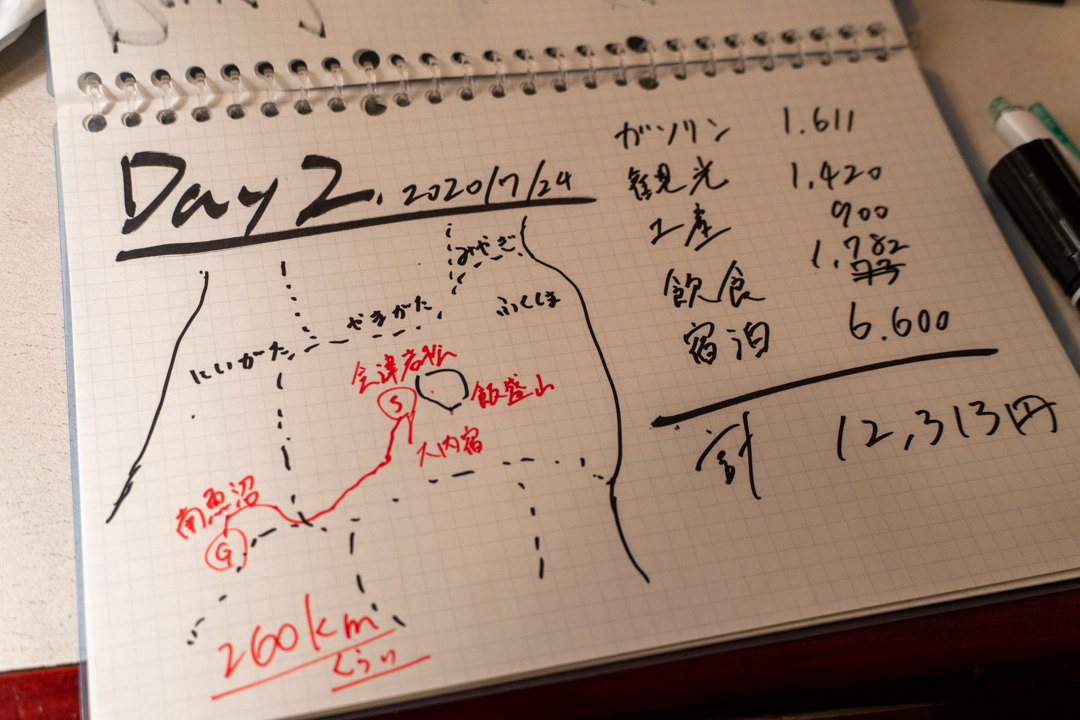 Day 2. 2020/7/24
みやぎ
ふくしま
やまがた
にいがた
会津若松
S
飯盛山
大内宿
南魚沼
G
260km
くらい
ガソリン 1.611
観光 1.420
土産 900
飲食 1.782
宿泊 6.600
計 12,313円